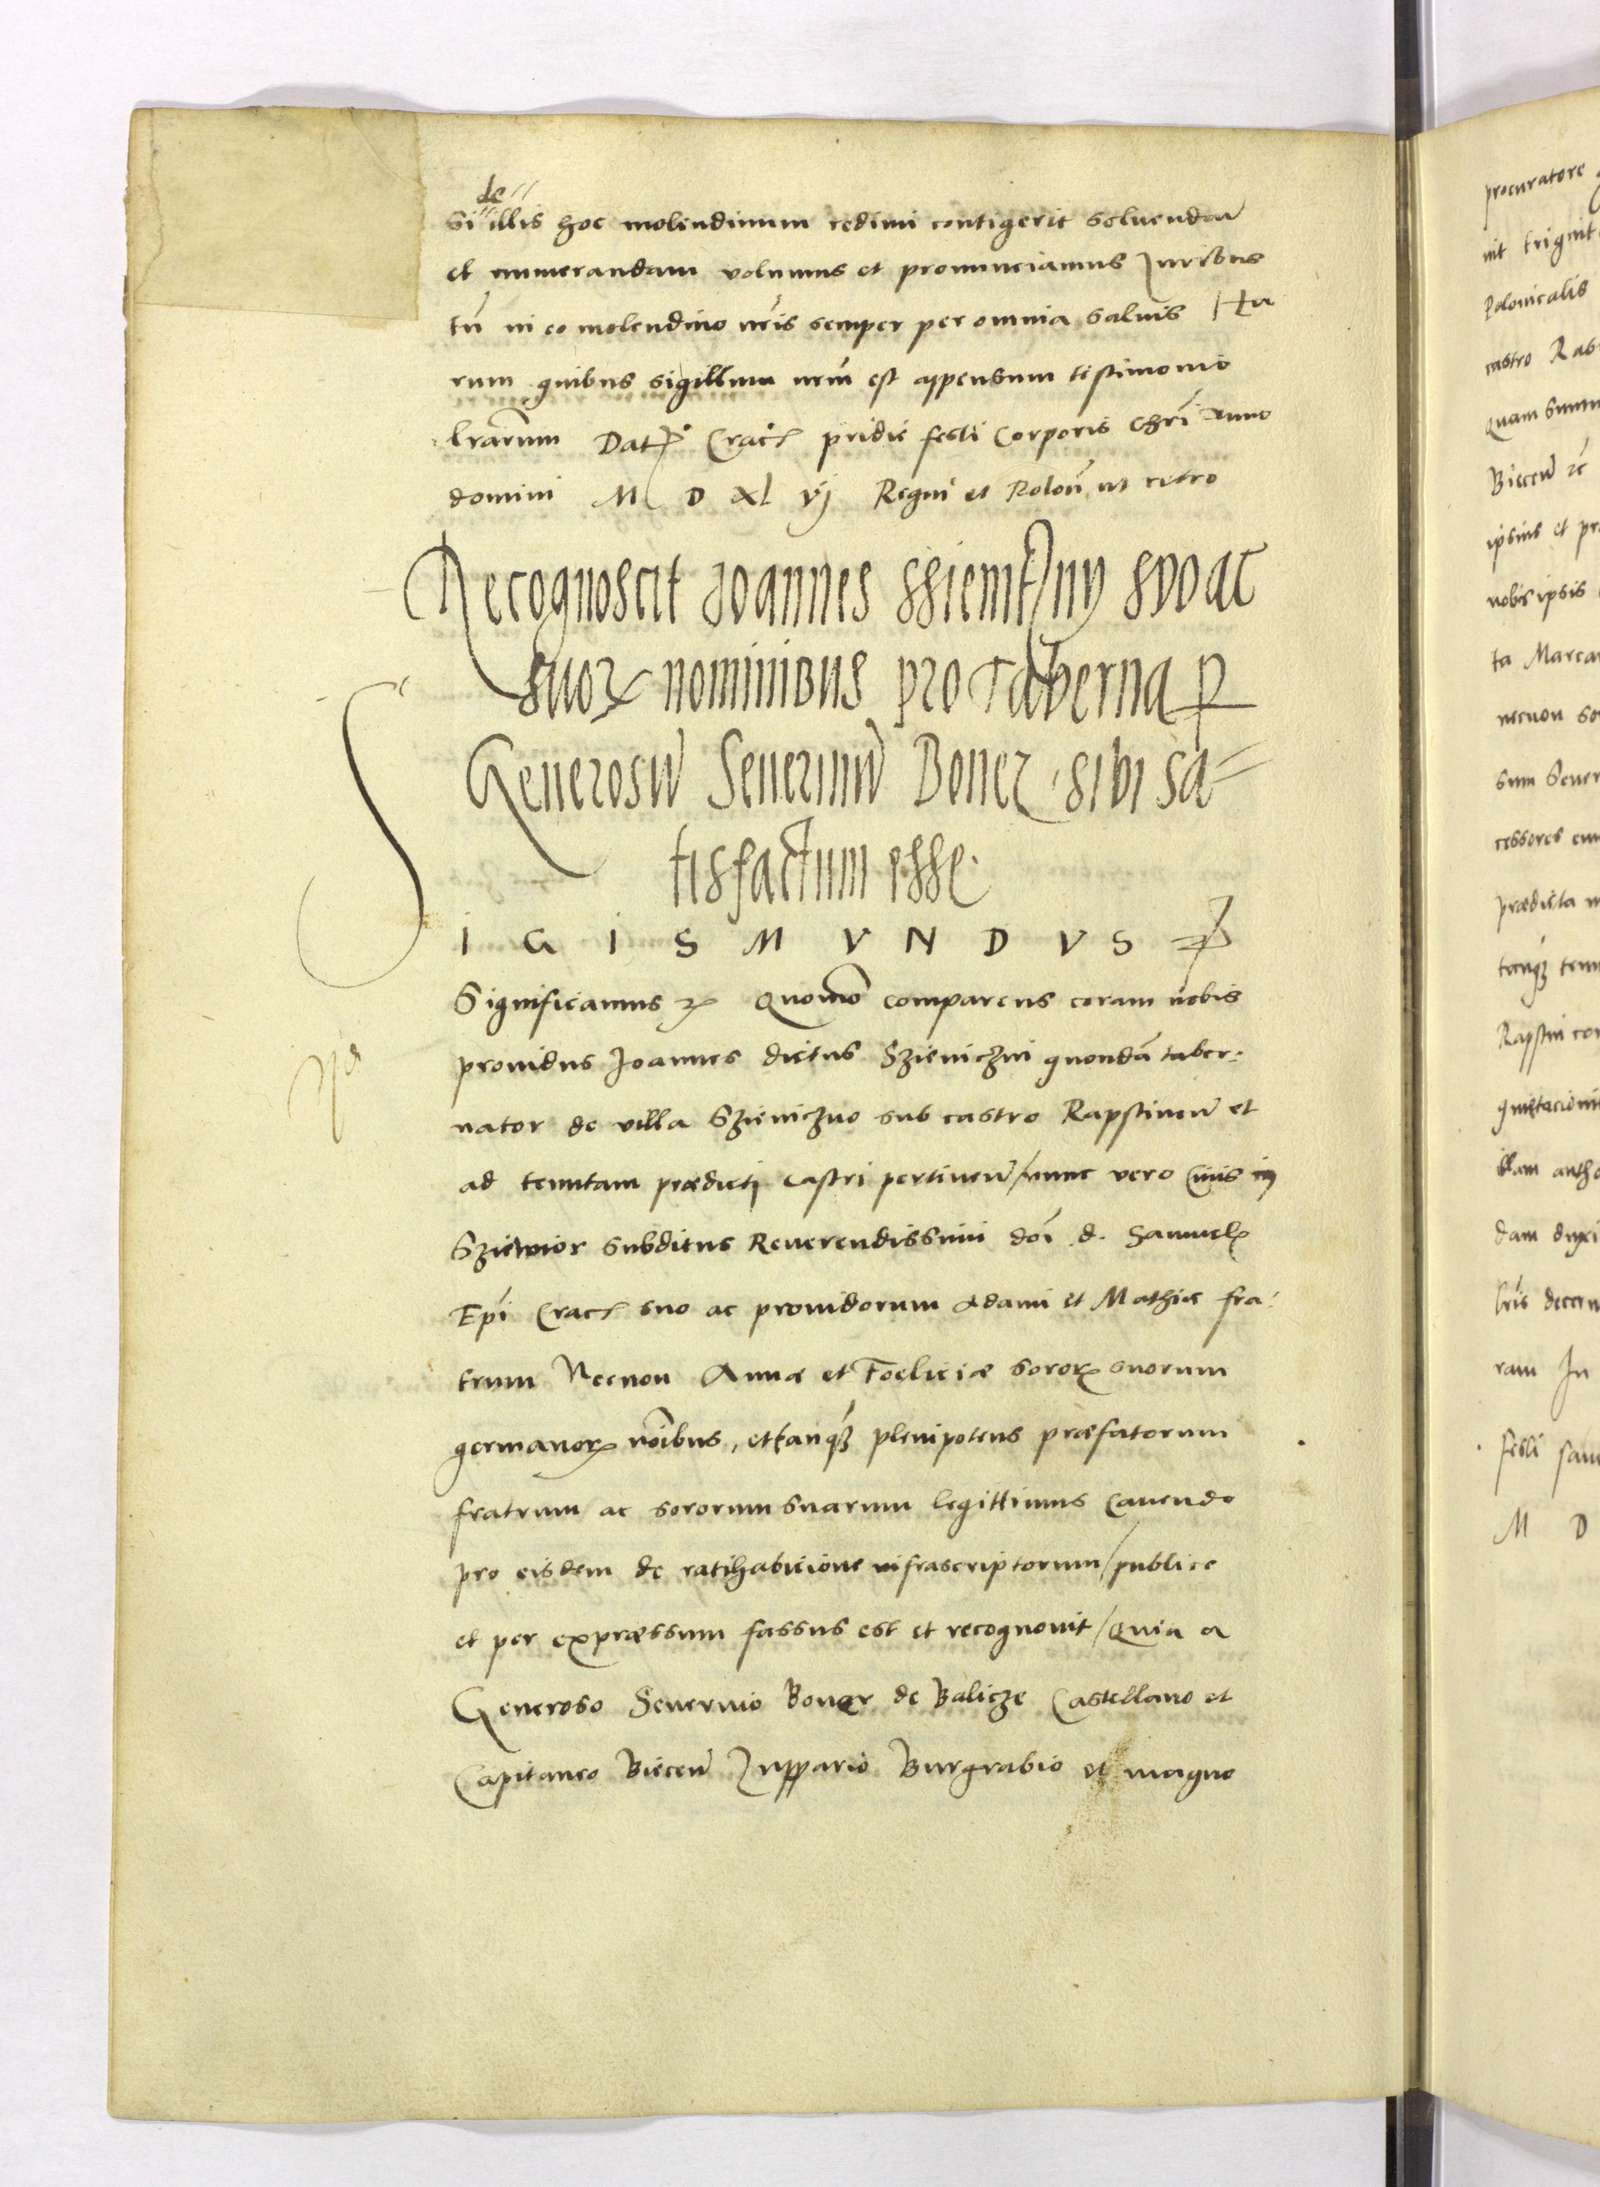 de
Si illis hoc molendinum redimi contigerit soluendam̄
et numerandam volumus et pronunciamus Juribus
tn̄ in eo molendino nr̄is semper per omnia saluis Ha
rum quibus sigillum nrm̄ est appensum testimonio
lrarum Dat Crac pridie festi Corporis Chri Anno
domini M D XL vj Regni et Polon̄ ut retro
Recognoscit Joannes suo ac
suoꝝ nominibus pro Taberna ꝑ
Generosū Seuerinū Boner sibi sa-
tisfactum esse.
SIGISMVNDVS
Significamus ꝛc Quomo comparens coram nobis
prouidus Joannes dictus Szieniczni quondā taber-
nator de villa Szieniczno sub castro Rapstinen̄ et
ad tenutam prædicti castri pertinen̄ / nunc vero Ciuis in
subditus Reuerendissimi doi d. Samuelꝭ
Epi Crac suo ac prouidorum Adami et Mathiæ fra-
trum Necnon Annæ et Fœliciæ sororꝝ suorum
germanorꝝ noibus, et tanqꝫ plenipotens præfatorum
fratrum ac sororum suarum legittimus Cauendo
pro eisdem de ratihabicione infrascriptorum / publice
et per expræssum fassus est et recognouit / Quia a
Generoso Seuerino Boner de Balicze Castellano et
Capitaneo Biecen̄ Zuppario Burgrabio et magno
procuratore
nit trigint
Polonicalis
castro Ras
quam summ
Biecen̄ ꝛc
ipsius et pr
nobis ipsis
ta Marcar
necnon so
sum Seuer
cessores
prædicta
tanqꝫ
Rapstin
quietacioni
illam autho
dam duxi
lris decern
ram In
festi
M D